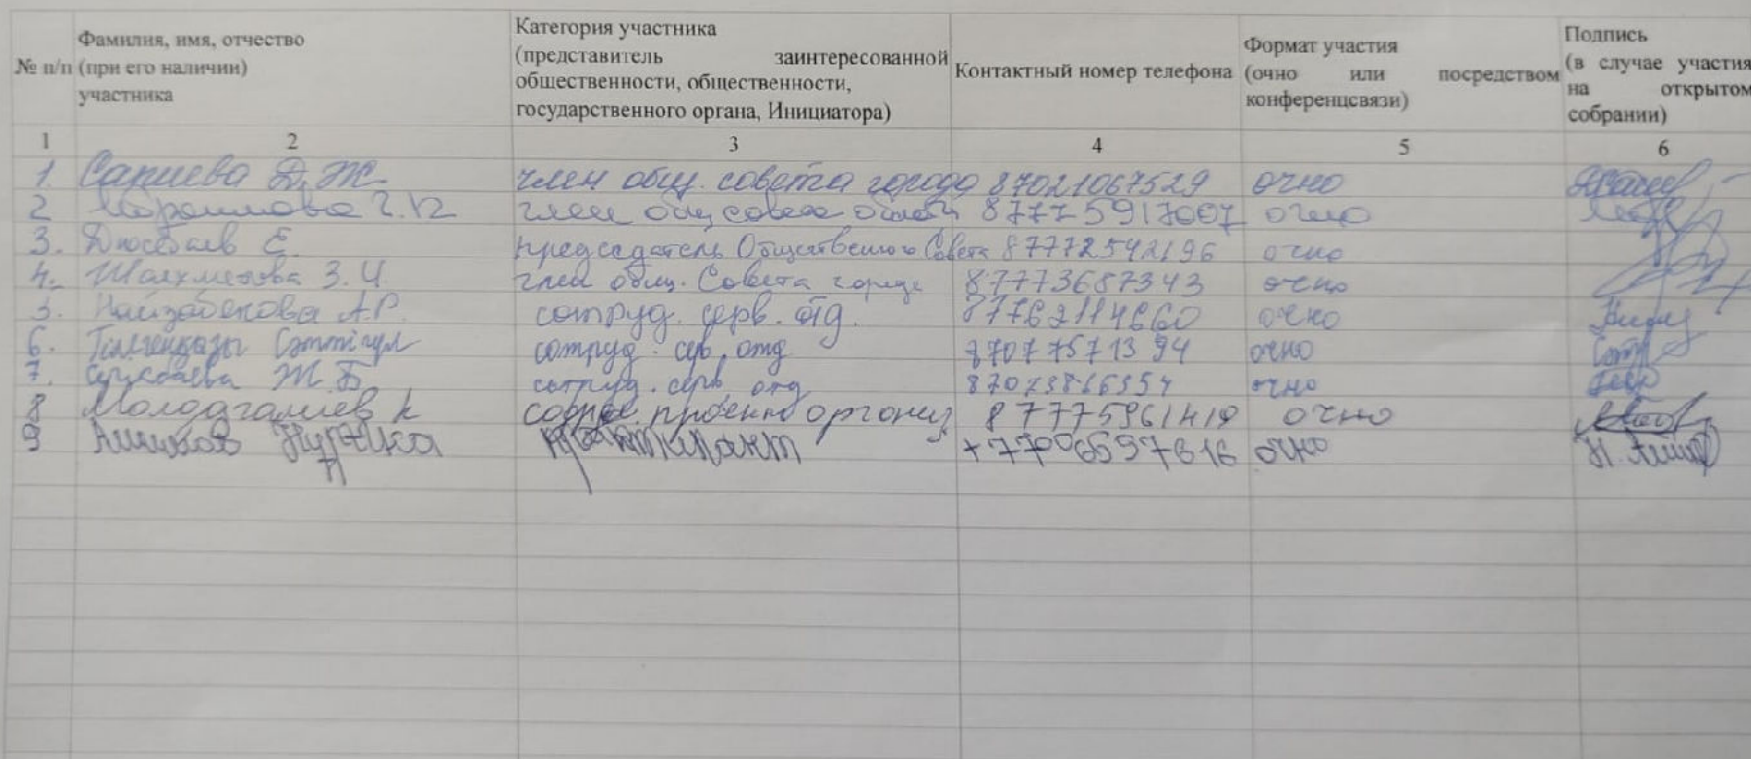 № п/п
Фамилия, имя, отчество
(при его наличии)
участника
Категория участника
(представитель заинтересованной
общественности, общественности,
государственного органа, Инициатора)
Контактный номер телефона
Формат участия
(очно или посредством
конференцсвязи)
Подпись
(в случае участия
на открытом
собрании)
1 2 3 4 5 6
1. Сариева Д.Ж. член общ. совета города 87021067529 очно
2 член общ совета 87775917007 очно
3. Дюсебаев Е. председатель Общественного Совета 87772542196 очно
4. З. член общ. Совета города 87773687343 очно
5. Найзабекова А.Р. сотруд. серв. отд. 87762114660 очно
6. сотруд. сер. отд 87077571394 очно
7. Ж.Б. сотруд. серв отд очно
8 Молодгалиев К 87775961419 очно
9 практикант +77066597616 очно